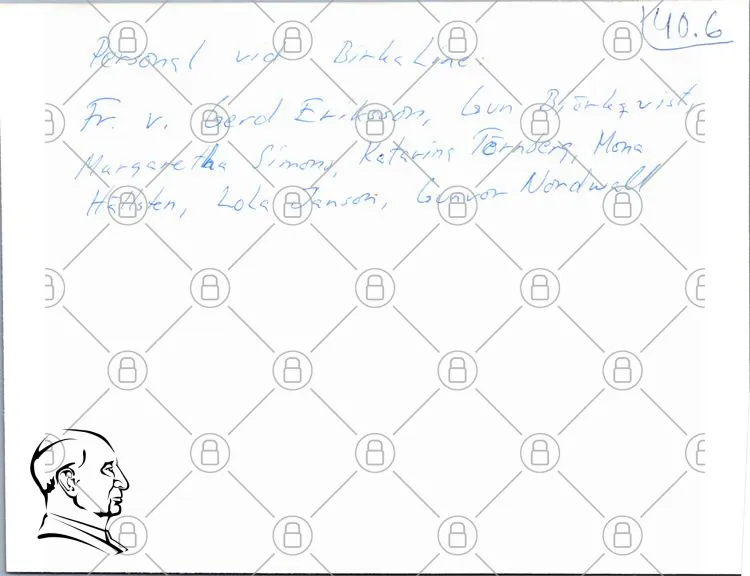 40.6
Personal vid Birka Line.
Fr. v. Gerd Eriksson, Gun Björkqvist,
Margaretha Simons, Katarina Törnberg, Mona
Hallsten, Lola Janson, Gunvor Nordwall